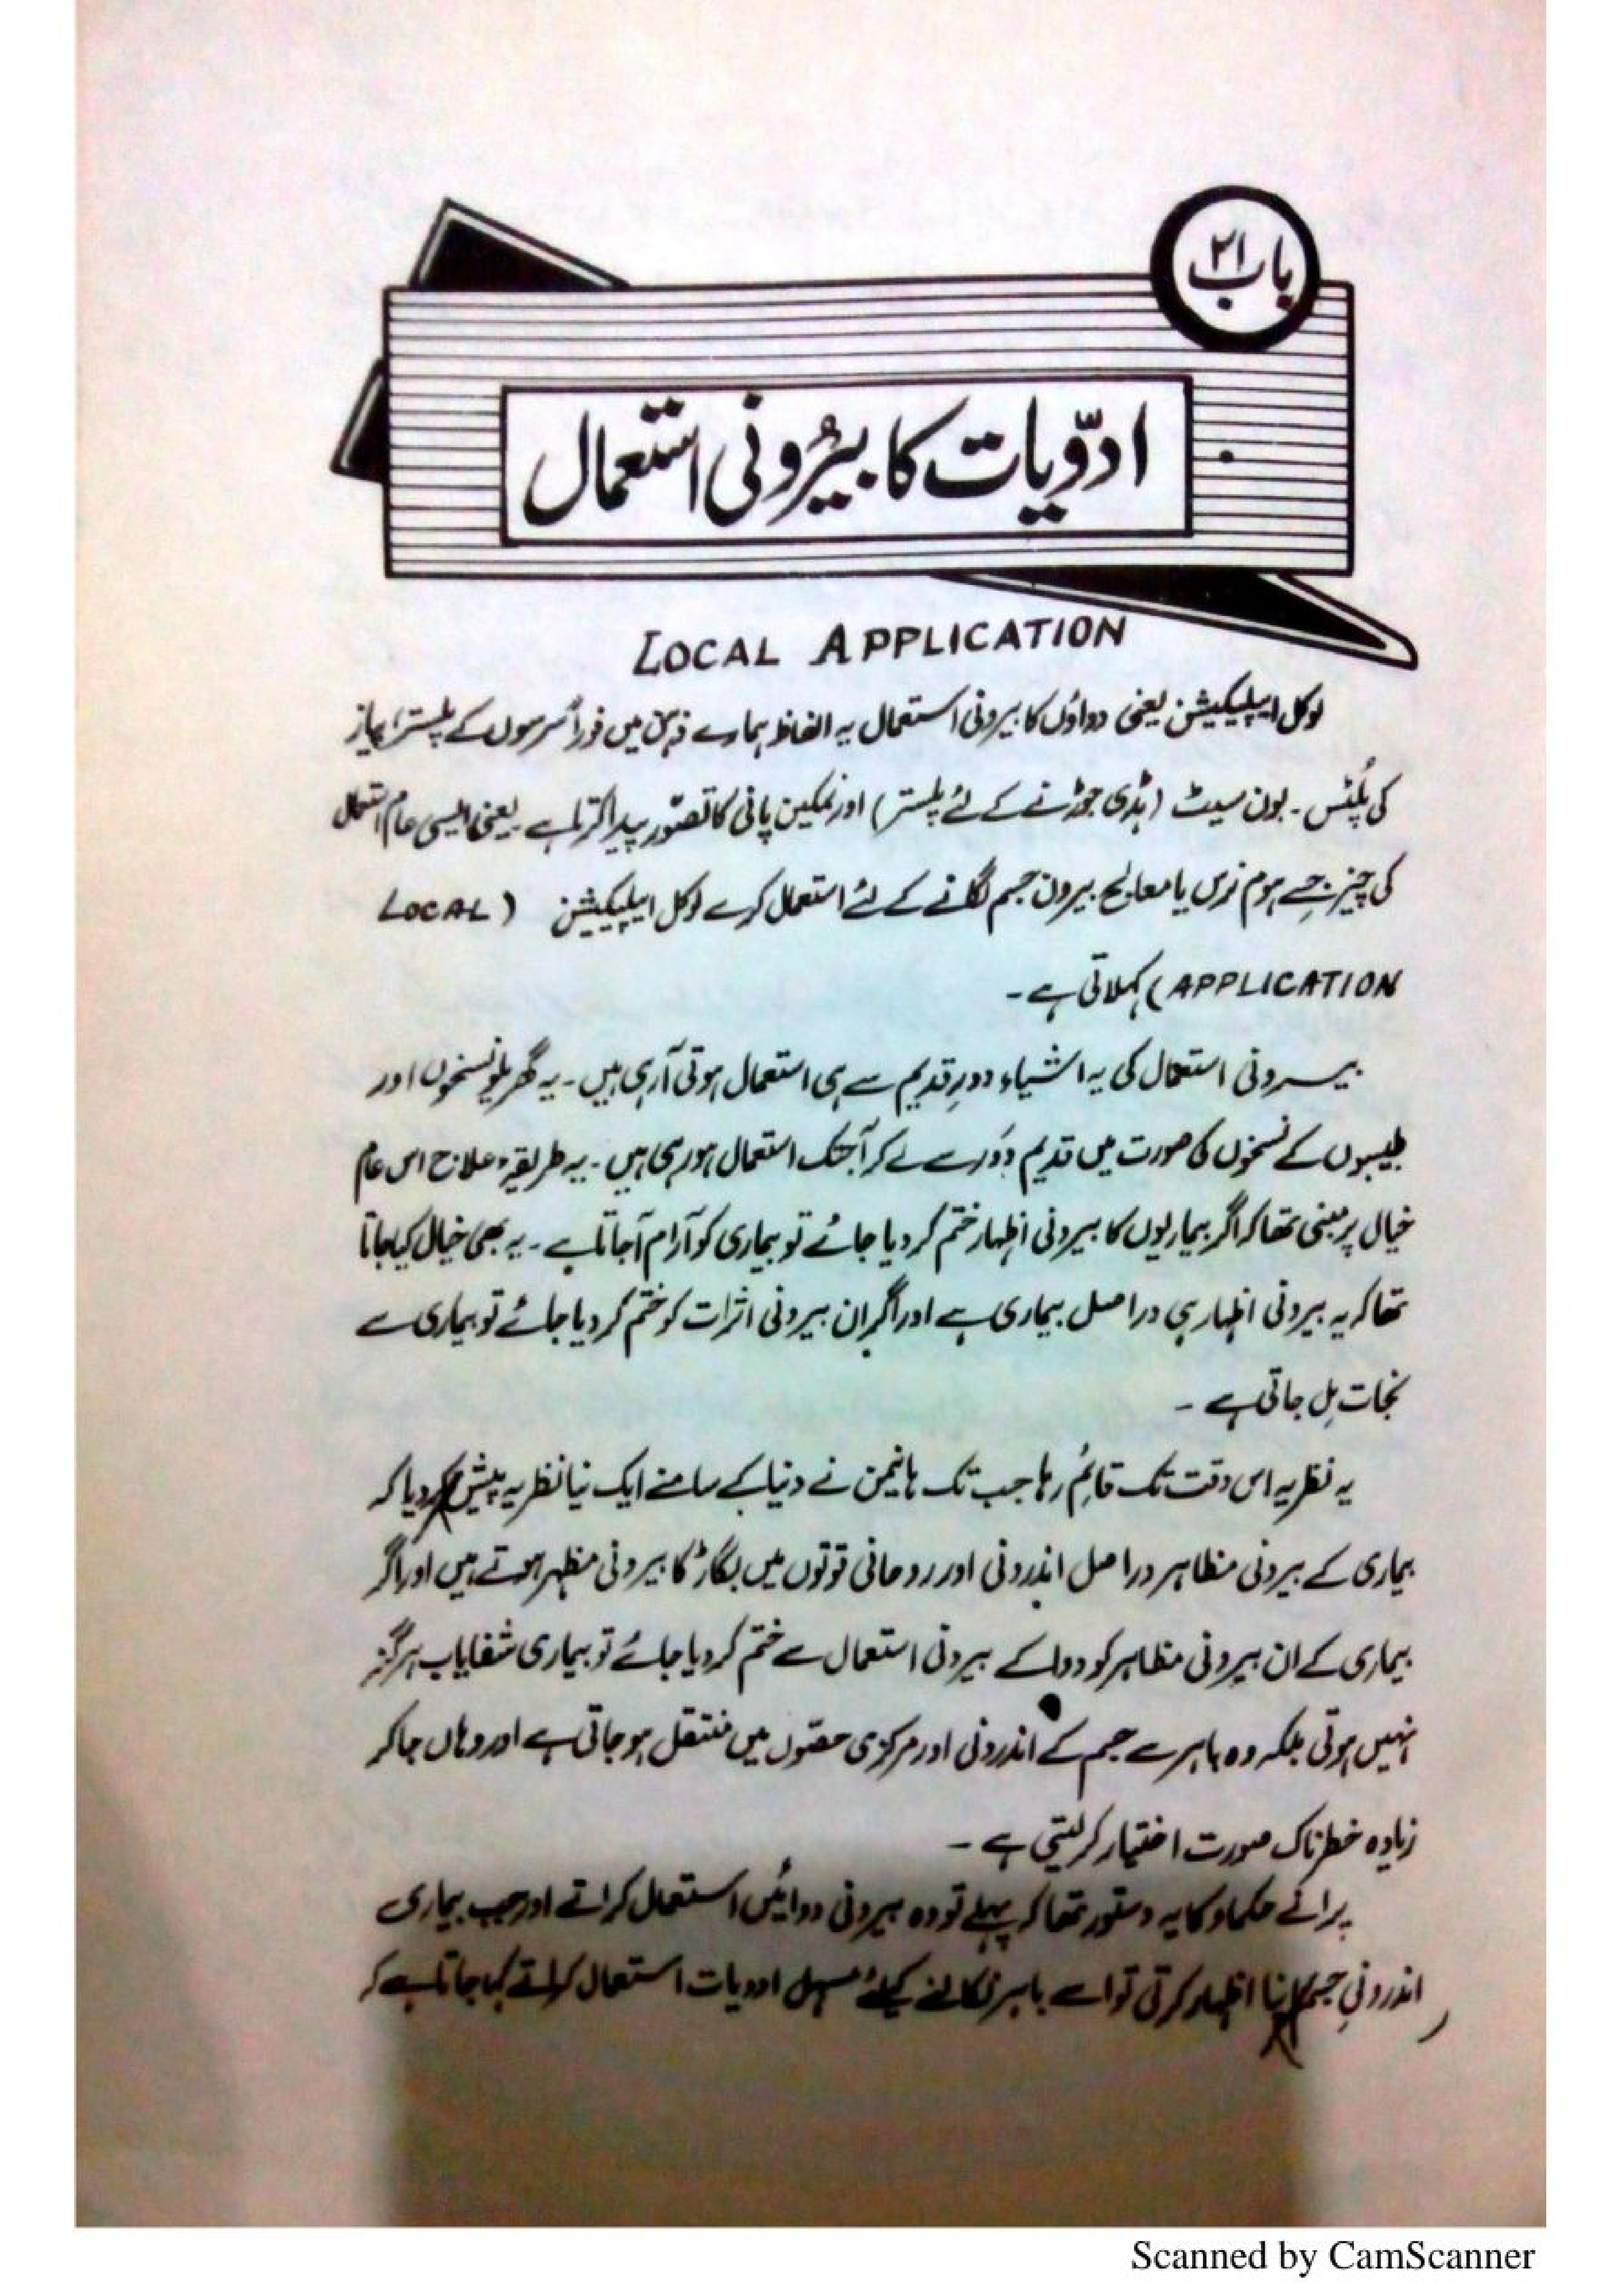 باب ۲۱
ادوّیات کا بیرُونی استعمال
LOCAL APPLICATION
لوکل ایپلیکیشن یعنی دواؤں کا بیرونی استعمال یہ الفاظ ہمارے ذہن میں فوراً سرسوں کے پلستر، پیاز
کی پُلٹس ۔ بون سیٹ (ہڈی جوڑنے کے لئے پلستر) اور نمکین پانی کا تصوّر پیدا کرتا ہے ۔ یعنی ایسی عام استعمال
کی چیز جسے ہوم نرس یا معالج بیرون جسم لگانے کے لئے استعمال کرے لوکل ایپلیکیشن (LOCAL
APPLICATION) کہلاتی ہے ۔
بیرونی استعمال کی یہ اشیاء دورِ قدیم سے ہی استعمال ہوتی آ رہی ہیں ۔ یہ گھریلو نسخوں اور
طبیبوں کے نسخوں کی صورت میں قدیم دَور سے لے کر آجتک استعمال ہو رہی ہیں ۔ یہ طریقۂ علاج اس عام
خیال پر مبنی تھا کہ اگر بیماریوں کا بیرونی اظہار ختم کر دیا جائے تو بیماری کو آرام آ جاتا ہے ۔ یہ بھی خیال کیا جاتا
تھا کہ یہ بیرونی اظہار ہی دراصل بیماری ہے اور اگر ان بیرونی اثرات کو ختم کر دیا جائے تو بیماری سے
نجات مِل جاتی ہے ۔
یہ نظریہ اس وقت تک قائم رہا جب تک ہانیمن نے دنیا کے سامنے ایک نیا نظریہ پیش کر دیا کہ
بیماری کے بیرونی مظاہر دراصل اندرونی اور روحانی قوتوں میں بگاڑ کا بیرونی مظہر ہوتے ہیں اور اگر
بیماری کے ان بیرونی مظاہر کو دوا کے بیرونی استعمال سے ختم کر دیا جائے تو بیماری شفایاب ہرگز
نہیں ہوتی بلکہ وہ باہر سے جسم کے اندرونی اور مرکزی حصّوں میں منتقل ہو جاتی ہے اور وہاں جا کر
زیادہ خطرناک صورت اختیار کر لیتی ہے ۔
پرانے حکماء کا یہ دستور تھا کہ پہلے تو وہ بیرونی دوائیں استعمال کراتے اور جب بیماری
اندرونیِ جسم اپنا اظہار کرتی تو اسے باہر نکالنے کیلئے مسہل ادویات استعمال کراتے کہا جاتا ہے کہ
Scanned by CamScanner